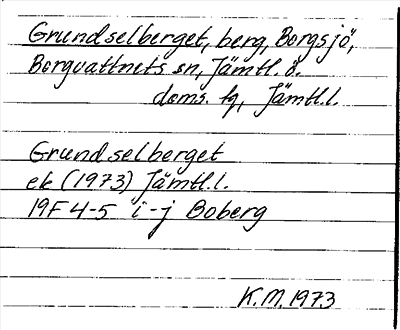 Grundselberget, berg, Borgsjö,
Borgvattnets sn, Jämtl. ö.
doms. tg, Jämtl.l.
Grundselberget
ek (1973) Jämtl.l.
19F 4-5 i-j Boberg
K.M. 1973